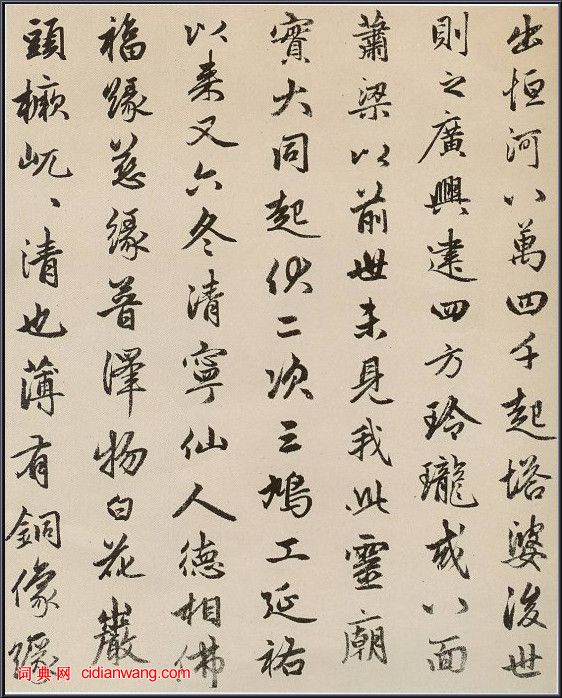 出恒河八萬四千起塔婆後世
則之廣興建四方玲瓏或八面
蕭梁以前世未見我此靈廟
實大同起伏二次三鳩工延祐
以来又六冬清寧仙人德相佛
福緣慈緣普澤物白花巖
頭橛屼〻清也薄有銅像
词典网 cidianwang.com